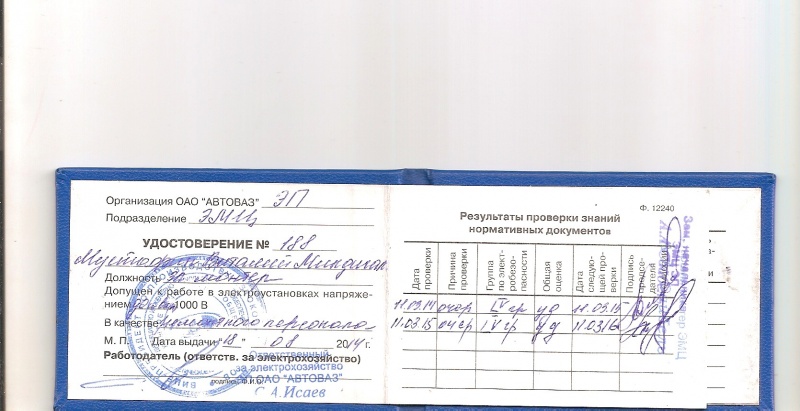 Организация ОАО "АВТОВАЗ" ЭП
Подразделение ЭМЦ
УДОСТОВЕРЕНИЕ № 188
Виталий
Должность эл. монтер
Допущен к работе в электроустановках напряже-
нием 1000 В
В качестве ремонтного персонала
М. П. Дата выдачи "18" 08 2014г.
Работодатель (ответств. за электрохозяйство)
Ответственный
за электрохозяйство
ОАО "АВТОВАЗ"
С.А.Исаев
подпись, Ф.И.О.
Ф. 12240
Результаты проверки знаний
нормативных документов
Дата проверки
Причина проверки
Группа по элект-робезо-пасности
Общая оценка
Дата следую-щей про-верки
Подпись председа-теля
11.03.14 очер IV гр уд 11.03.15
11.03.15 очер IV гр уд 11.03.16